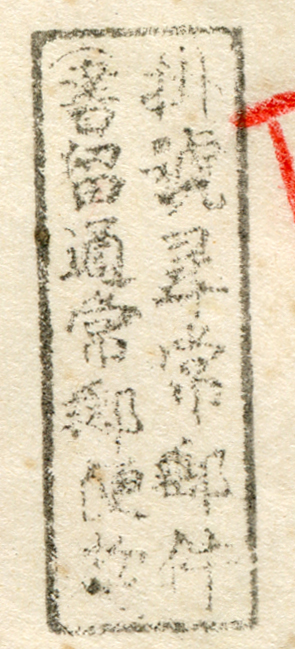 掛號尋常郵件
書留通常郵便物